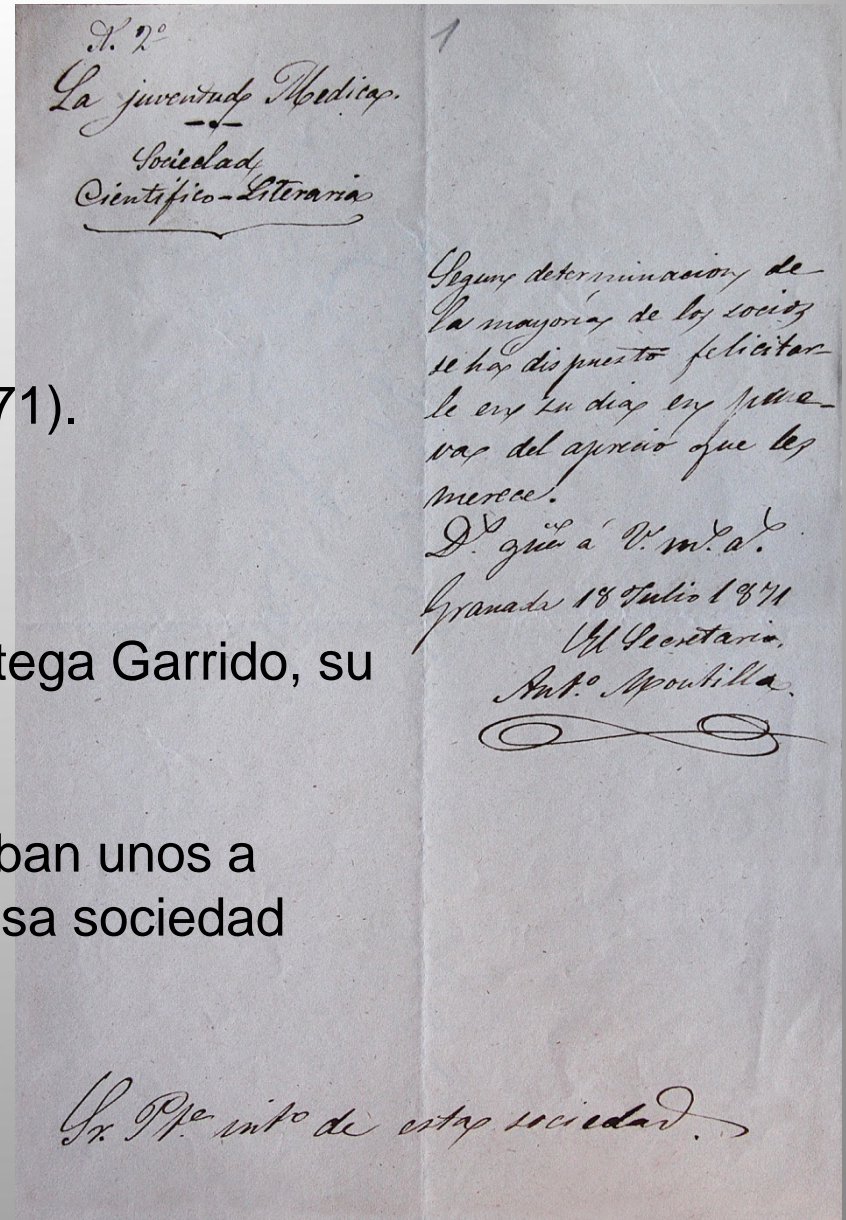 N. 2º
La juventud Medica.
Sociedad
Cientifico-Literaria
1
Segun determinacion de
la mayoria de los socios
se há dispuesto felicitar-
le en su dia en prue-
vas del aprecio que les
merece.
D.s güe á V. m.s a.s
Granada 18 Julio 1871
El Secretario.
Ant.º Montilla.
Sr. Pte. intº de esta sociedad.
71).
tega Garrido, su
ban unos a
sa sociedad